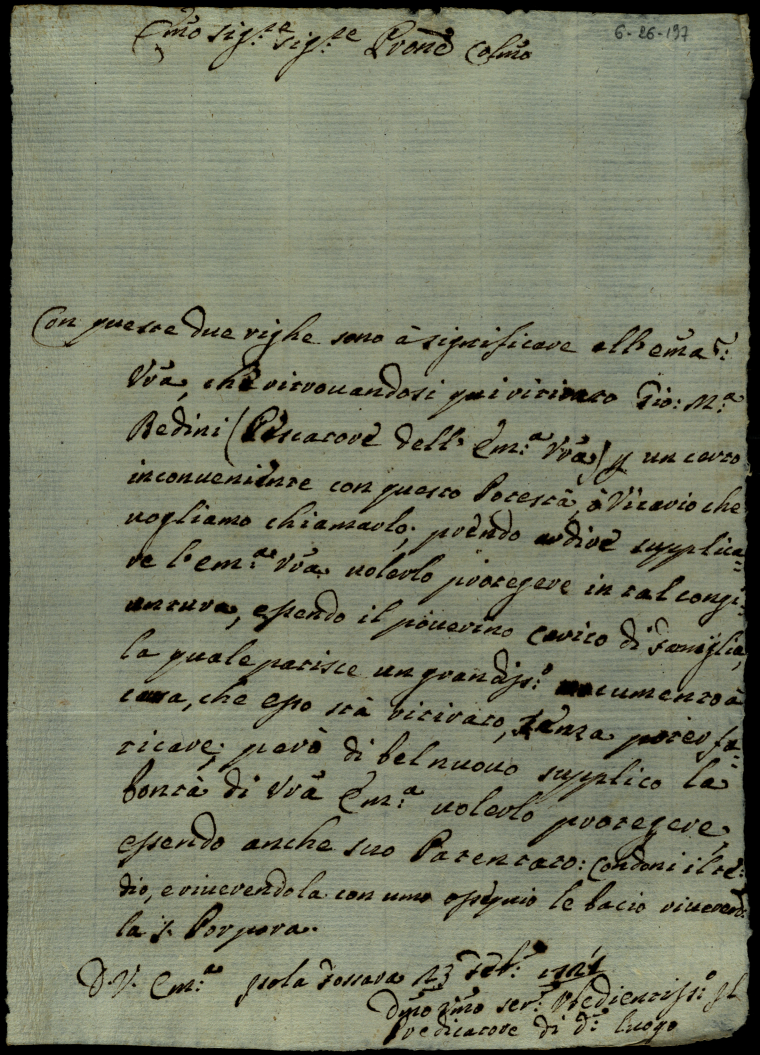 6-26-197
Em̃o Sig.re Sig.re Prone Colmo
Con queste due righe sono à significare all'Em̃a
Vrã, che ritrouandosi qui ritirato Gio: M.a
Redini (Pescatore dell'Em.a Vrã) p un certo
inconueniente con questo Potestà, ò Vicario che
uogliamo chiamarlo; prendo ardire supplica=
re l'Em.a Vrã uolerlo protegere in tal congi=
untura, essendo il pouerino carico di Famiglia,
la quale patisce un grandiss.o nocumento à
causa, che esso stà ritirato, senza poter fa=
ticare; però di bel nuouo supplico la
bontà di Vrã Em.a uolerlo protegere,
essendo anche suo Patentato: condoni il te=
dio, e riuerendola con umo ossequio le bacio riuerend:
la S. Porpora.
D. V. Em.a Isola Fossara 23 Feb.o
Dmo Umo ser.e Obedientiss.o il
Predicatore di d.o luogo